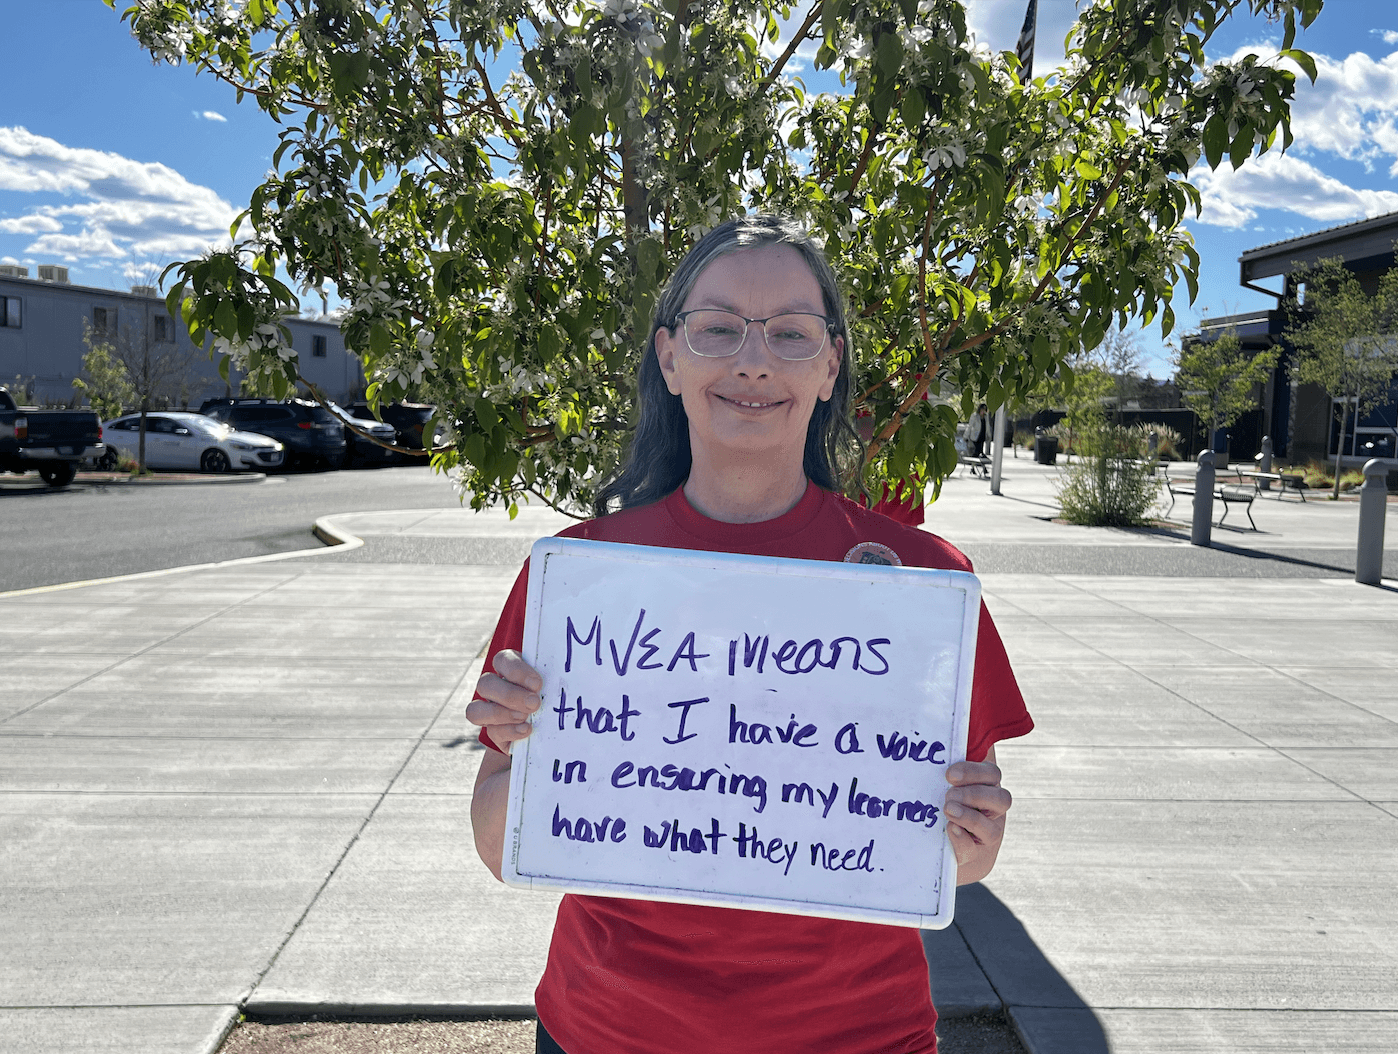 MVEA Means
that I have a voice
in ensuring my learners
have what they need.